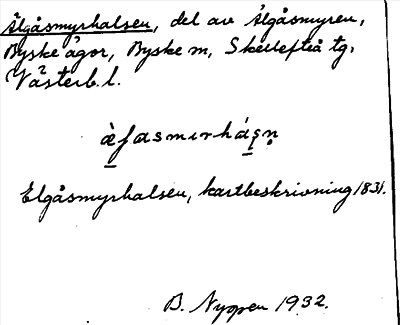 Älgåsmyrhalsen, del av Älgåsmyren,
Byske ägor, Byske sn, Skellefteå tg,
Västerb. l.
Elgåsmyrhalsen, kartbeskrivning 1831.
B. Nygren 1932.